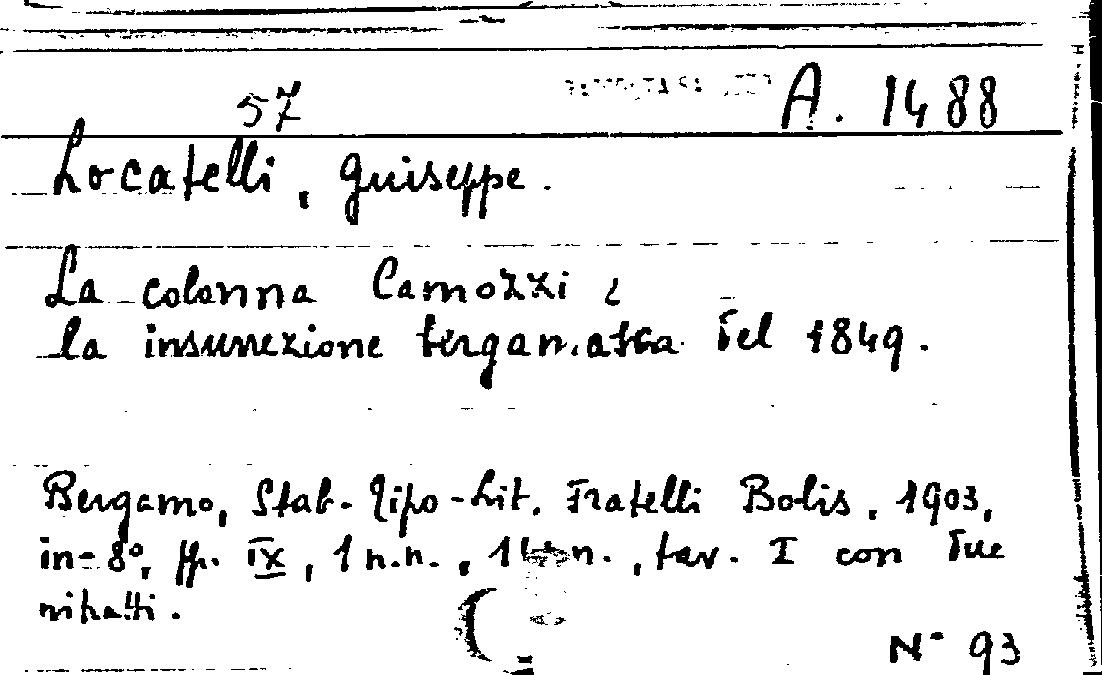 57 A. 1488
Locatelli, Guiseppe.
La colonna Camozzi e
la insurrezione bergamasca del 1849.
Bergamo, Stab. Tipo-Lit. Fratelli Bolis, 1903,
in-8°, pp. IX, 1 n.n., n., tav. I con due
ritratti.
N° 93